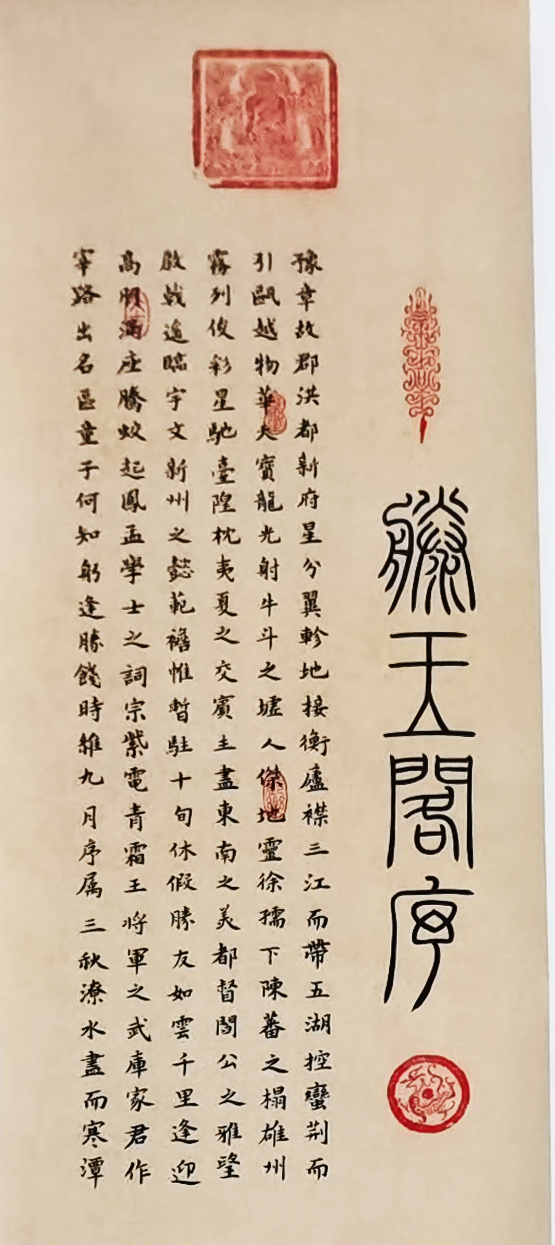 滕王閣序
豫章故郡洪都新府星分翼軫地接衡廬襟三江而帶五湖控蠻荊而
引甌越物華天寶龍光射牛斗之墟人傑地靈徐孺下陳蕃之榻雄州
霧列俊彩星馳臺隍枕夷夏之交賓主盡東南之美都督閻公之雅望
啟戟遙臨宇文新州之懿範襜惟暫駐十旬休假勝友如雲千里逢迎
高朋滿座騰蛟起鳳孟學士之詞宗紫電青霜王將軍之武庫家君作
宰路出名區童子何知躬逢勝餞時維九月序属三秋潦水盡而寒潭